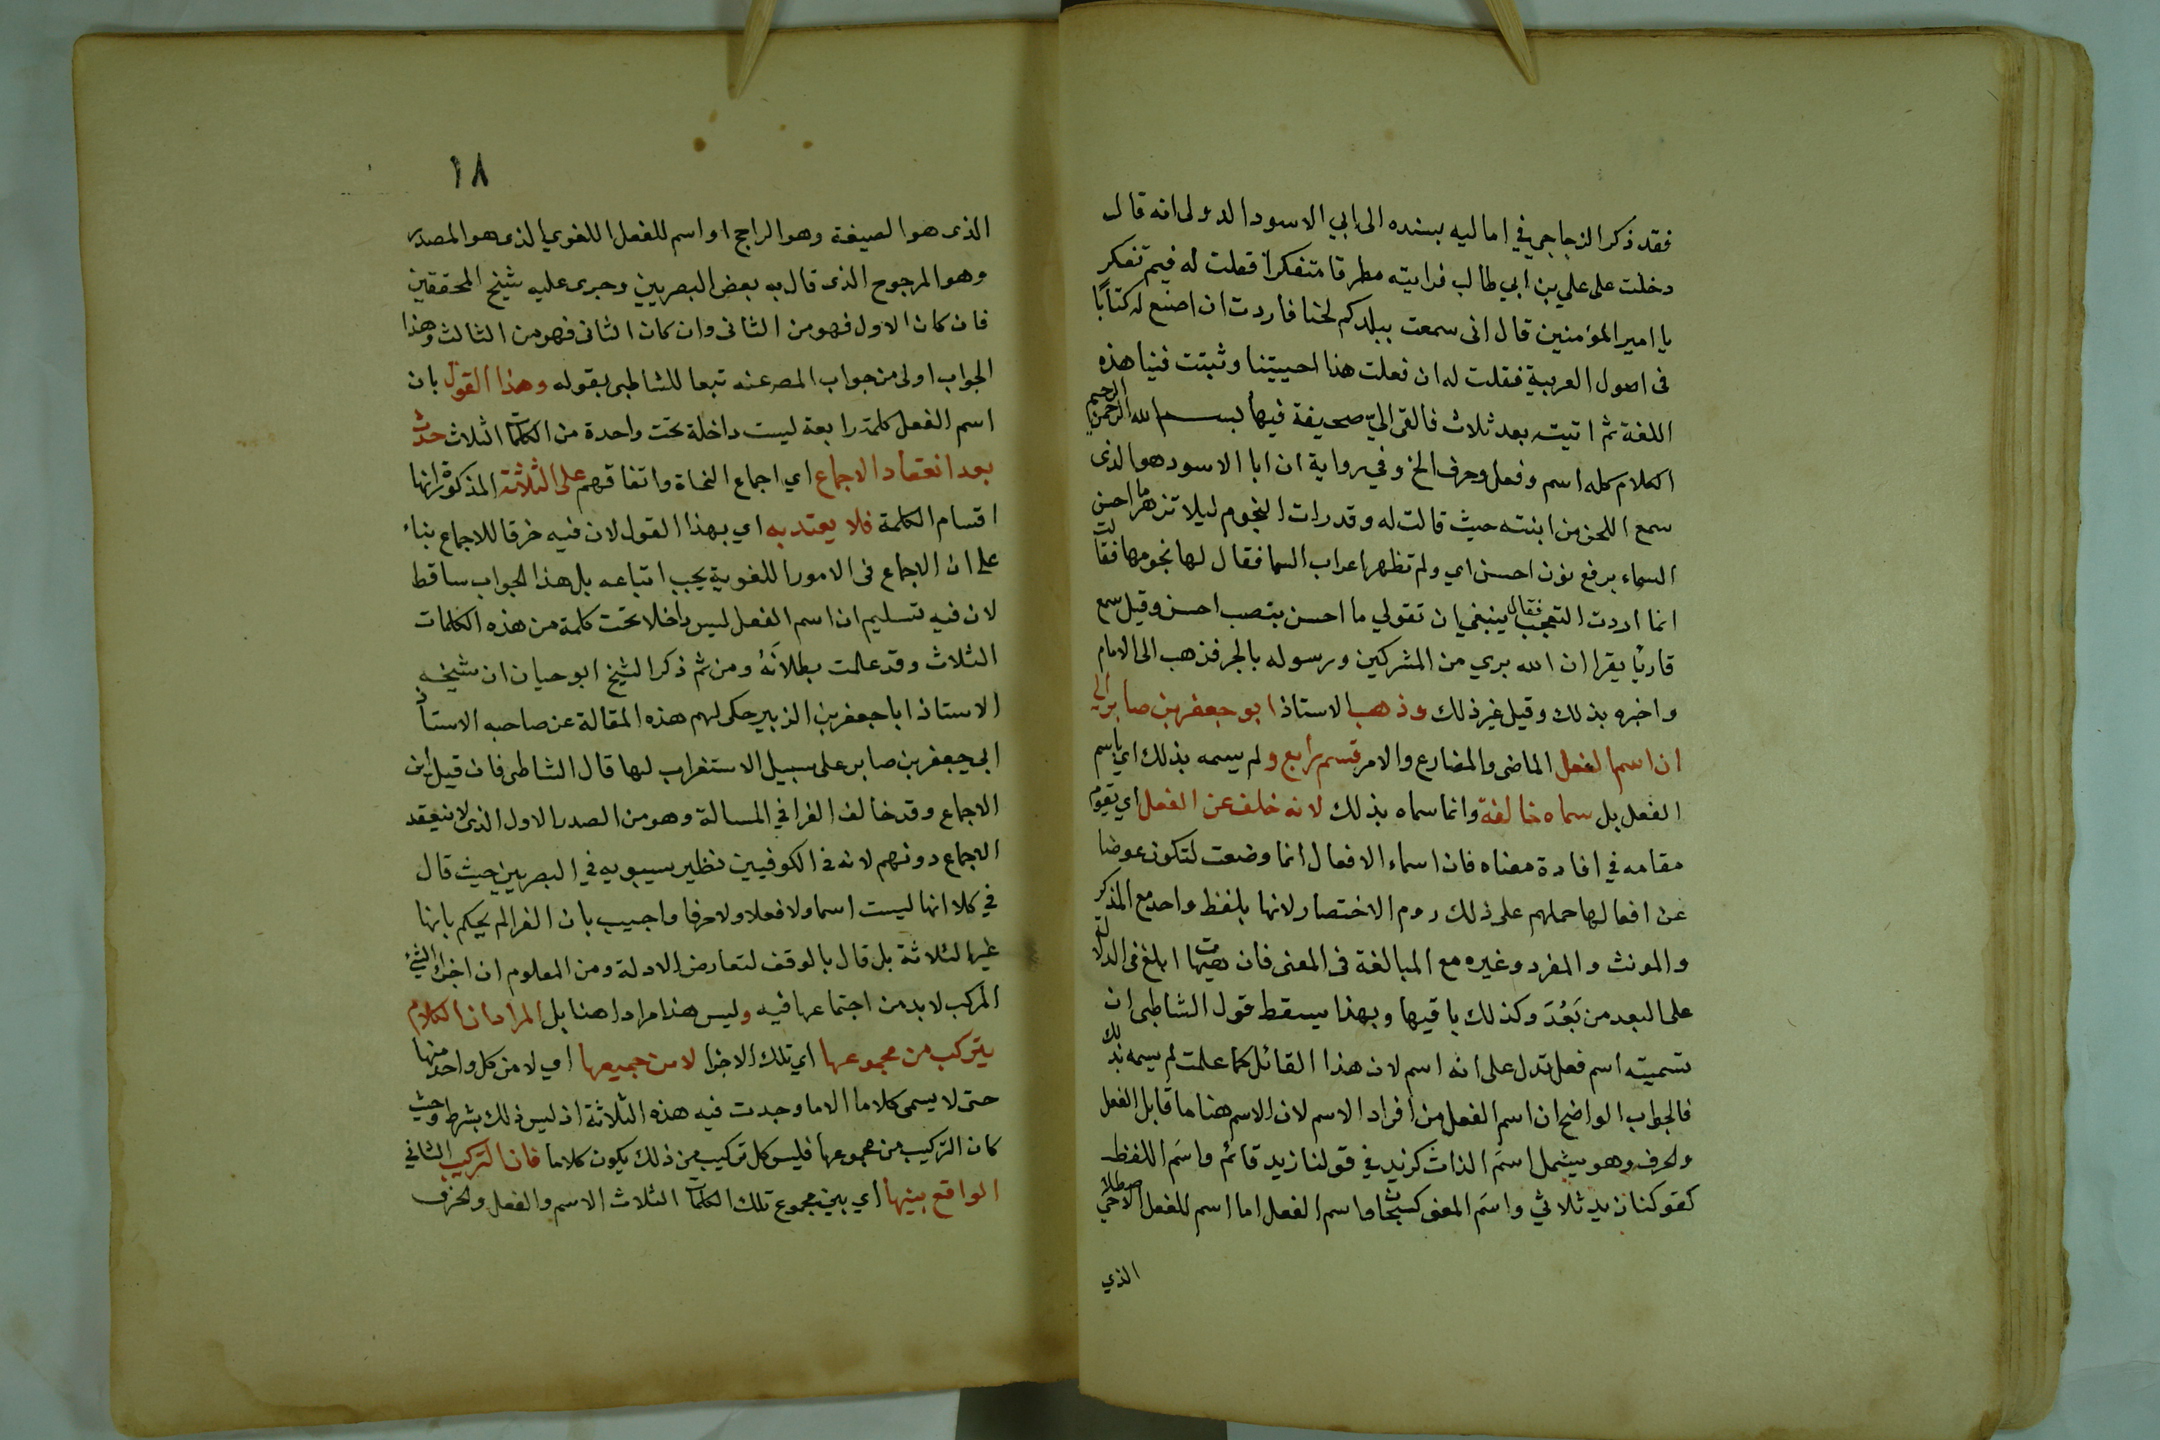 فقد ذكر الزجاجي في اماليه بسنده الى ابي الاسود الدولى انه قال
دخلت على علي بن ابي طالب فرايته مطرقا متفكرا فقلت له فيم تفكر
يا امير المؤمنين قال انى سمعت ببلدكم لحنا فاردت ان اصنع له كتابًا
فى اصول العربية فقلت له ان فعلت هذا احييتنا وثبتت فينا هذه
اللغة ثم اتيته بعد ثلاث فالقى اليّ صحيفة فيها بسم الله الرحمن الرحيم
الكلام كله اسم وفعل وحرف الخ وفي رواية ان ابا الاسود هو الذى
سمع اللحن من ابنته حيث قالت له وقد رات النجوم ليلا تزهر ما احسن
السماء برفع نون احسن اي ولم تظهر اعراب السما فقال لها نجومها فقالت
انما اردت التعجب فقال ينبغي ان تقولي ما احسن بنصب احسن وقيل سمع
قاريًا يقرا ان الله بري من المشركين ورسوله بالجر فذهب الى الامام
واخبره بذلك وقيل غير ذلك وذهب الاستاذ ابو جعفر بن صابر الى
ان اسم الفعل الماضى والمضارع والامر قسم رابع ولم يسمه بذلك اي باسم
الفعل بل سماه خالفة وانما سماه بذلك لانه خلف عن الفعل اي يقوم
مقامه في افادة معناه فان اسماء الافعال انما وضعت لتكون عوضا
عن افعالها حملهم على ذلك روم الاختصار لانها بلفظ واحد مع المذكر
والمونث والمفرد وغيره مع المبالغة فى المعنى فان هيهات ابلغ فى الدلالة
على البعد من بَعُدَ وكذلك باقيها وبهذا يسقط قول الشاطبى ان
تسميته اسم فعل تدل على انه اسم لان هذا القائل كما علمت لم يسمه بذلك
فالجواب الواضح ان اسم الفعل من افراد الاسم لان الاسم هنا ما قابل الفعل
والحرف وهو يشمل اسمَ الذات كزيد في قولنا زيد قائم واسمَ اللفظ
كقولنا زيد ثلاثي واسمَ المعنى واسم الفعل اما اسم للفعل الاصطلاحي
الذي
١٨
الذى هو الصيغة وهو الراجح او اسم للفعل اللغوي الذى هو المصدر
وهو المرجوح الذى قال به بعض البصريين وجرى عليه شيخ المحققين
فان كان الاول فهو من الثانى وان كان الثانى فهو من الثالث وهذا
الجواب اولى من جواب المص عنه تبعا للشاطبى بقوله وهذا القول بان
اسم الفعل كلمة رابعة ليست داخلة تحت واحدة من الكلمات الثلاث حدث
بعد انعقاد الاجماع اي اجماع النحاة واتفاقهم على الثلاثة المذكورة انها
اقسام الكلمة فلا يعتد به اي بهذا القول لان فيه خرقا للاجماع بناء
على ان الاجماع فى الامور اللغوية يجب اتباعه بل هذا الجواب ساقط
لان فيه تسليم ان اسم الفعل ليس داخلا تحت كلمة من هذه الكلمات
الثلاث وقد علمت بطلانَهُ ومن ثم ذكر الشيخ ابو حيان ان شيخه
الاستاذ ابا جعفر بن الزبير حكى لهم هذه المقالة عن صاحبه الاستاذ
ابى جعفر بن صابر على سبيل الاستغراب لها قال الشاطبى فان قيل اين
الاجماع وقد خالف الفرا في المسالة وهو من الصدر الاول الذى لا ينعقد
الاجماع دونهم لانه فى الكوفيين نظير سيبويه في البصريين حيث قال
في كلا انها ليست اسما ولا فعلا ولا حرفا واجيب بان الفرا لم يحكم بانها
غير الثلاثة بل قال بالوقف لتعارض الادلة ومن المعلوم ان اجزاء الشيء
المركب لا بد من اجتماعها فيه وليس هذا مرادا هنا بل المراد ان الكلام
يتركب من مجموعها اي تلك الاجزا لا من جميعها اي لا من كل واحد منها
حتى لا يسمى كلاما الا ما وجدت فيه هذه الثلاثة اذ ليس ذلك بشرط وحيث
كان التركيب من مجموعها فليس كل تركيب من ذلك يكون كلاما فان التركيب الثنائي
الواقع بينها اي بين مجموع تلك الكلمات الثلاث الاسم والفعل والحرف